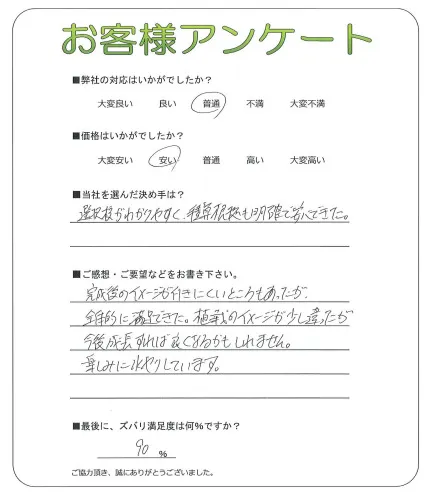 お客様アンケート
■弊社の対応はいかがでしたか？
大変良い 良い 普通 不満 大変不満
■価格はいかがでしたか？
大変安い 安い 普通 高い 大変高い
■当社を選んだ決め手は？
選択権がわかりやすく、積算根拠も明確で安心できた。
■ご感想・ご要望などをお書き下さい。
完成後のイメージが付きにくいところもあったが
全体的に満足できた。植栽のイメージが少し違ったが
今後成長すれば良くなるかもしれません。
楽しみに水やりしています。
■最後に、ズバリ満足度は何％ですか？
90 %
ご協力頂き、誠にありがとうございました。